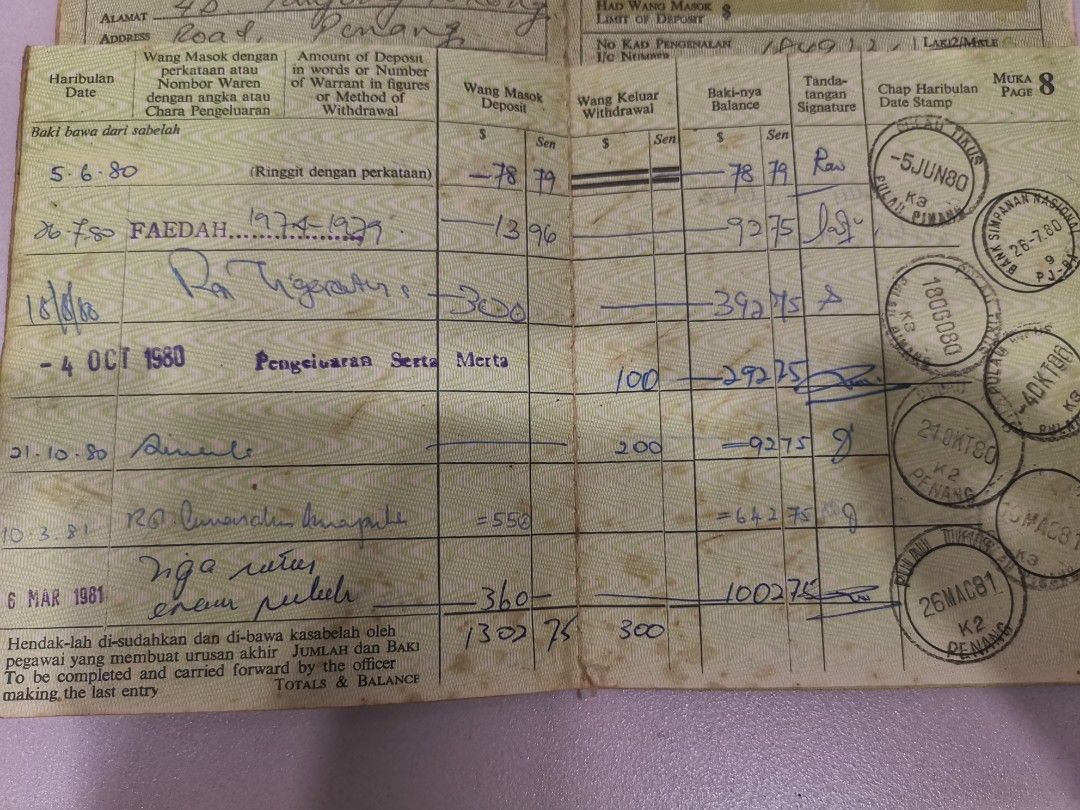 ALAMAT
ADDRESS Road, Penang
HAD WANG MASOK
LIMIT OF DEPOSIT $
NO KAD PENGENALAN
I/C NUMBER
LAKI2/MALE
Haribulan
Date
Wang Masok dengan
perkataan atau
Nombor Waren
dengan angka atau
Chara Pengeluaran
Amount of Deposit
in words or Number
of Warrant in figures
or Method of
Withdrawal
Wang Masok
Deposit
Wang Keluar
Withdrawal
Baki-nya
Balance
Tanda-
tangan
Signature
Chap Haribulan
Date Stamp
MUKA
PAGE 8
Baki bawa dari sabelah
$ Sen $ Sen $ Sen
5.6.80 (Ringgit dengan perkataan) 78 79 78 79
PULAU TIKUS
-5JUN80
K3
PULAU PINANG
26.7.80 FAEDAH 1974-1979 13 96 92 75
BANK SIMPANAN NASIONAL
26-7.80
9
18/8/80 300 392 75
18OGO80
K3
- 4 OCT 1980 Pengeluaran Serta Merta 100 292 75
-4OKT80
K3
21.10.80 200 92 75
21OKT80
K2
PENANG
10.3.81 =550 =642 75
MAC81
K3
6 MAR 1981 Tiga ratus
enam puluh 360 1002 75
26MAC81
K2
PENANG
1302 75 300
Hendak-lah di-sudahkan dan di-bawa kasabelah oleh
pegawai yang membuat urusan akhir JUMLAH dan BAKI
To be completed and carried forward by the officer
making the last entry TOTALS & BALANCE